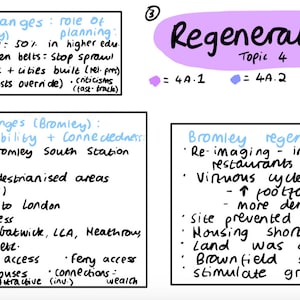 anges : role of
planning:
: 50% in higher edu.
en belts: stop sprawl
+ cities built (rel. prev)
sts override) • criticisms
(fast-track)
③
Regenera
Topic 4
= 4A.1
= 4A.2
nges (Bromley):
bility + Connectedness:
romley South Station
destrianised areas
)
to London
ess
Gatwick, LCA, Heathrow,
etc.
access • Ferry access
ouses • connections:
attractive (inv.) wealth
Bromley regen
• Re-imaging - in
restaurants
• Virtuous cycle
- ↑ footfo
- more den
• Site prevented
• Housing short
• Land was c
• Brownfield s
• stimulate gr